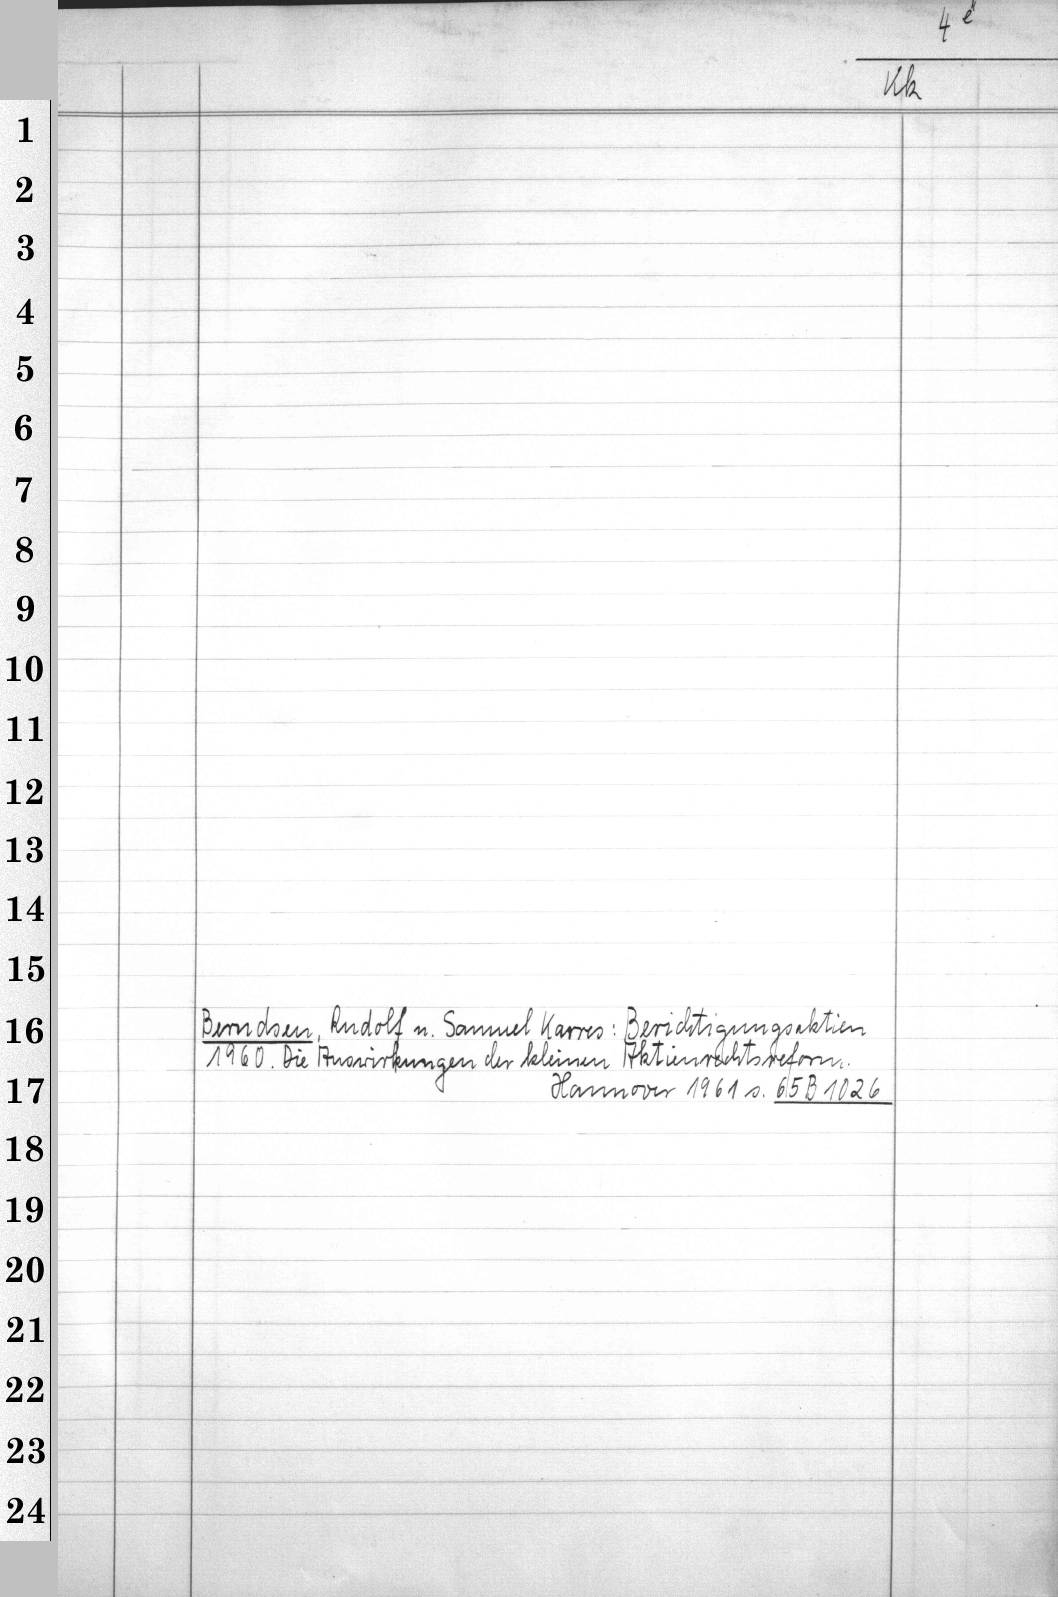 4 e
Kk
1
2
3
4
5
6
7
8
9
10
11
12
13
14
15
16
Berndsen, Rudolf u. Samuel Karres: Berichtigungsaktien
1960. Die Auswirkungen der kleinen Aktienrechtsreform.
17
Hannover 1961 s. 65 B 1026
18
19
20
21
22
23
24